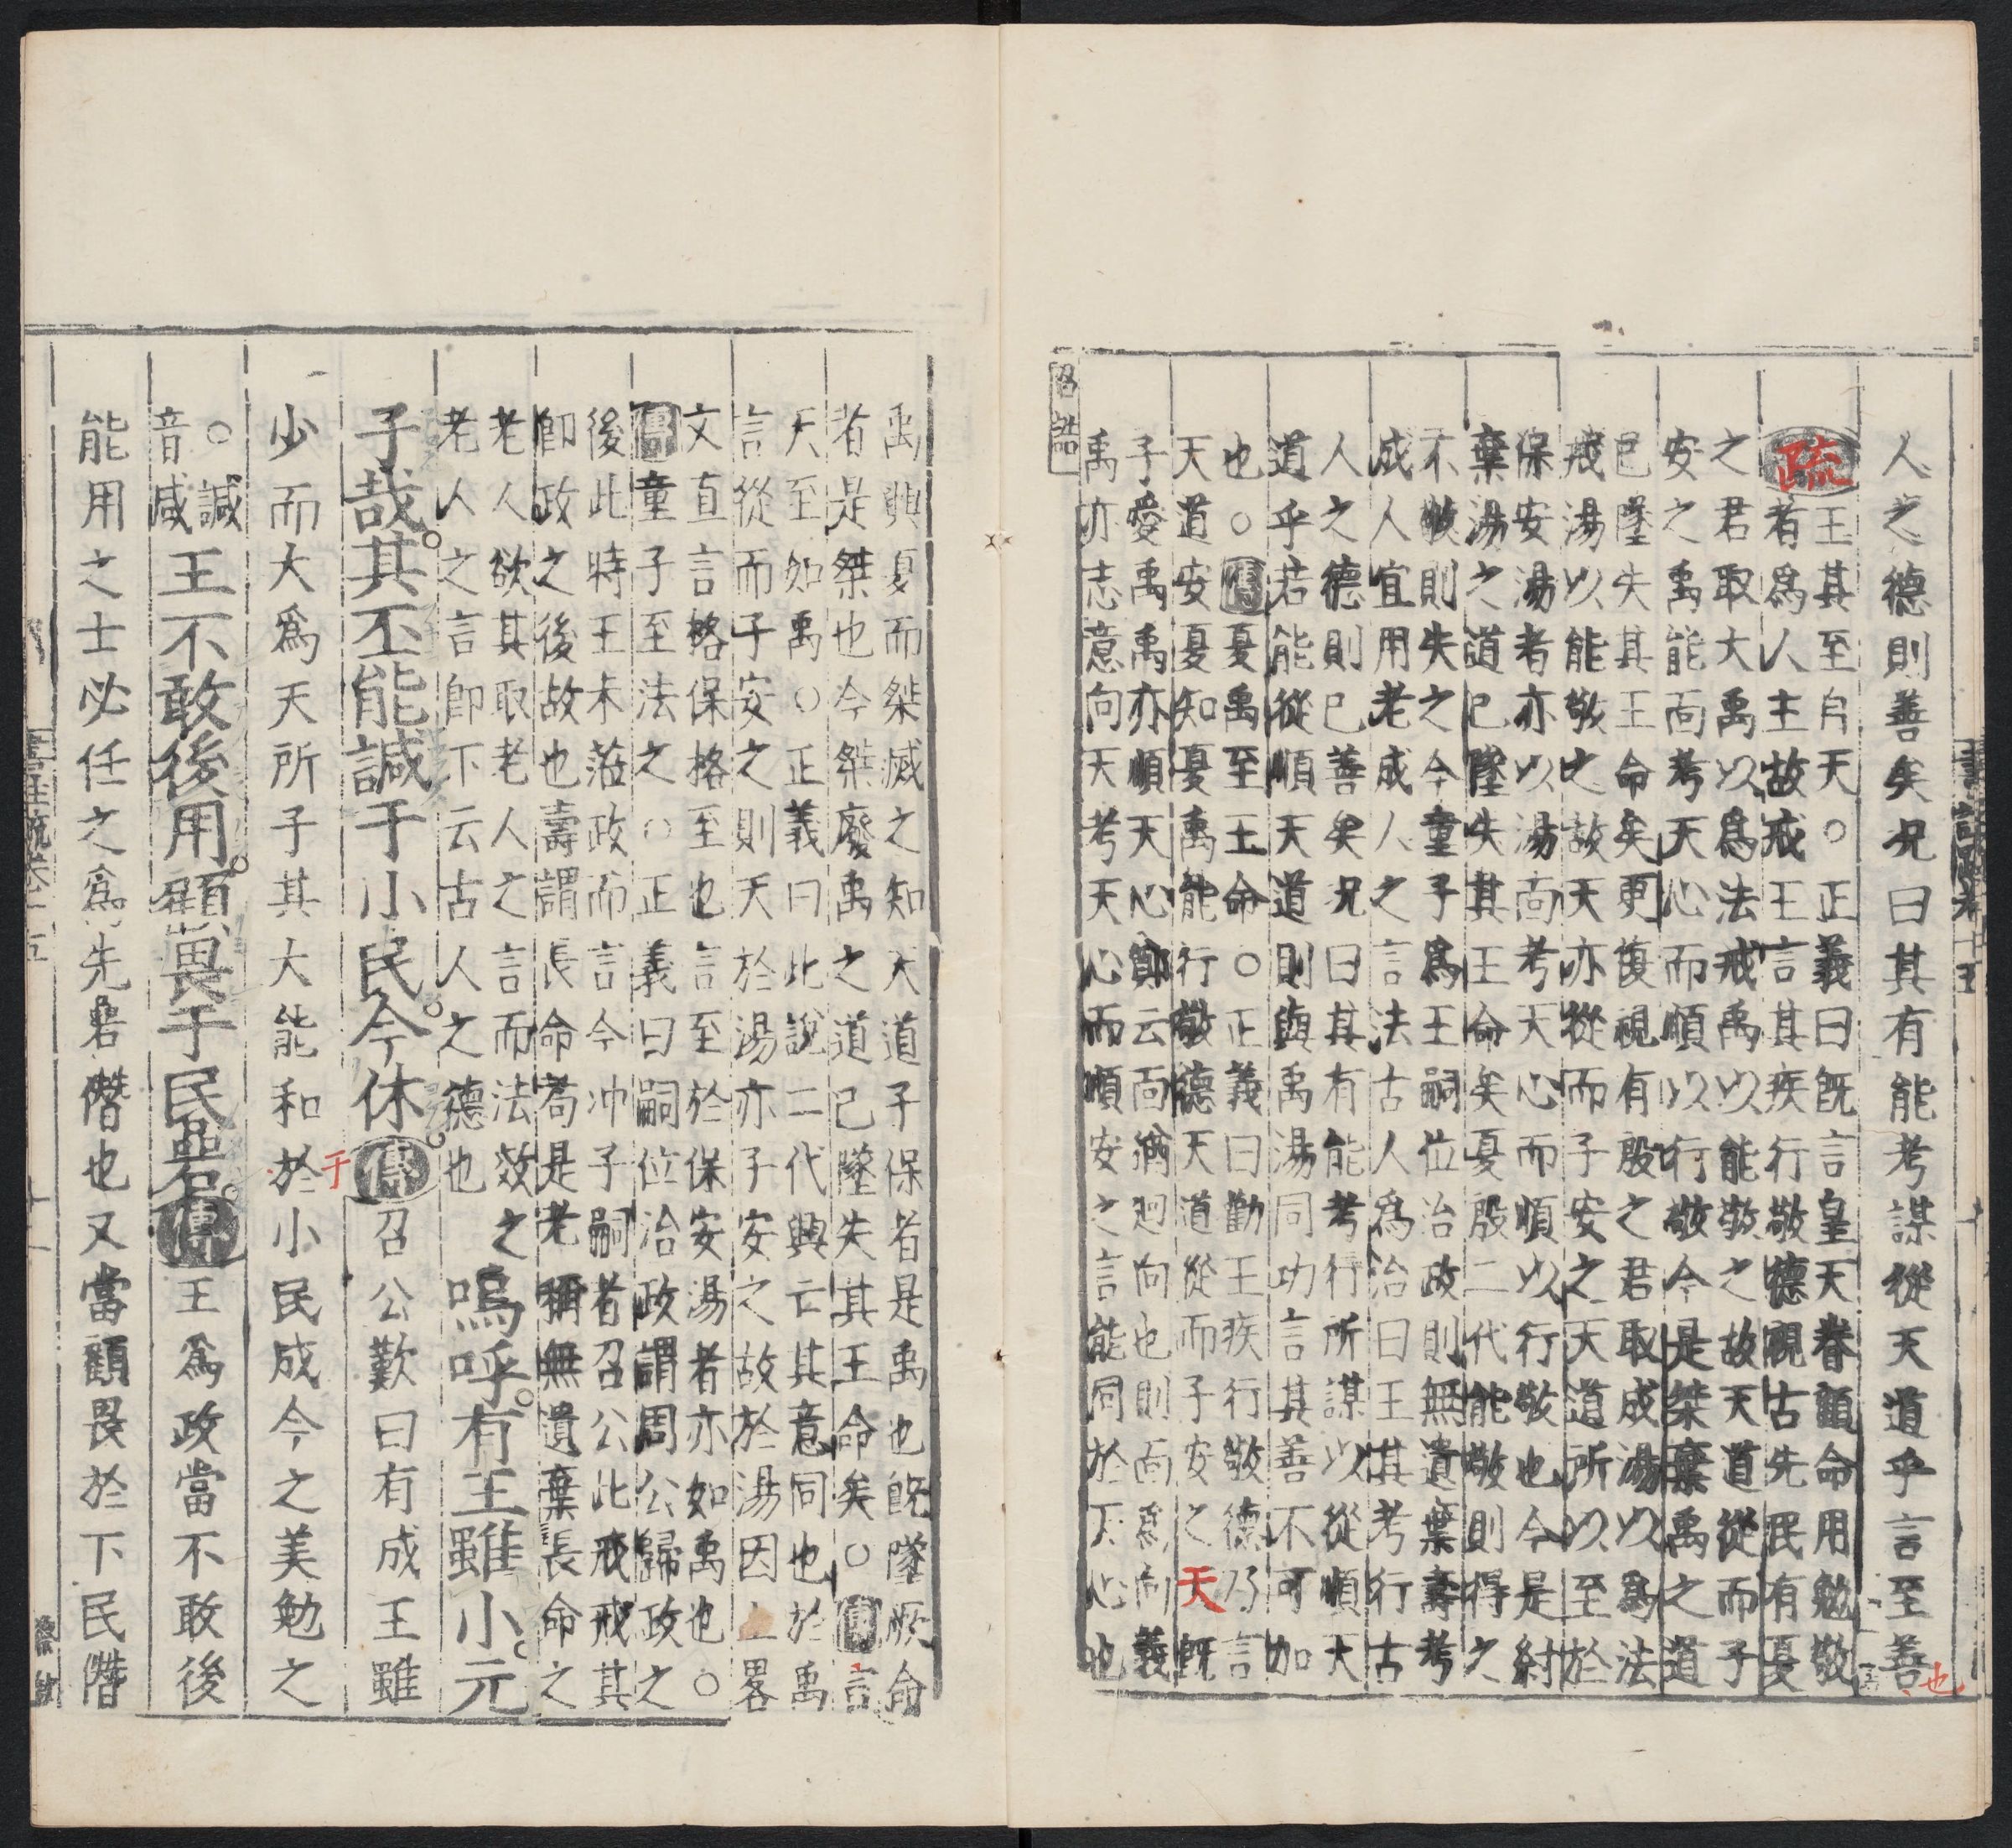 人之德則善矣況曰其有能考謀從天道乎言至善也
疏王其至自天○正義曰既言皇天眷顧命用勉敬
者爲人主故戒王言其疾行敬德視古先民有夏
之君取大禹以爲法戒禹以能敬之故天道從而子
安之禹能面考天心而順以行敬今是桀棄禹之道
已墜失其王命矣更復視有殷之君取成湯以爲法
戒湯以能敬之故天亦從而子安之天道所以至於
保安湯者亦以湯面考天心而順以行敬也今是紂
棄湯之道已墜失其王命矣夏殷二代能敬則得之
不敬則失之今童子爲王嗣位治政則無遺棄壽考
成人宜用老成人之言法古人爲治曰王其考行古
人之德則已善矣況曰其有能考行所謀以從順天
道乎若能從順天道則與禹湯同功言其善不可加
也○傳夏禹至王命○正義曰勸王疾行敬德乃言
天道安夏知夏禹能行敬德天道從而子安之天既
子愛禹禹亦順天心鄭云面猶迴向也則面爲向義
禹亦志意向天考天心而順安之言能同於天心也
洛誥
禹興夏而桀滅之知天道子保者是禹也既墜厥命
者是桀也今桀廢禹之道已墜失其王命矣○傳言
天至如禹○正義曰此說二代興亡其意同也於禹
言從而子安之則天於湯亦子安之故於湯因上畧
文直言格保格至也言至於保安湯者亦如禹也○
傳童子至法之○正義曰嗣位治政謂周公歸政之
後此時王未蒞政而言今沖子嗣者召公此戒戒其
卽政之後故也壽謂長命耇是老稱無遺棄長命之
老人欲其取老人之言而法效之
老人之言卽下云古人之德也
嗚呼有王雖小元
子哉其丕能諴于小民今休傳召公歎曰有成王雖
少而大爲天所子其大能和於于小民成今之美勉之
○諴
音咸
王不敢後用顧畏于民碞傳王爲政當不敢後
能用之士必任之爲先碞僭也又當顧畏於下民僭